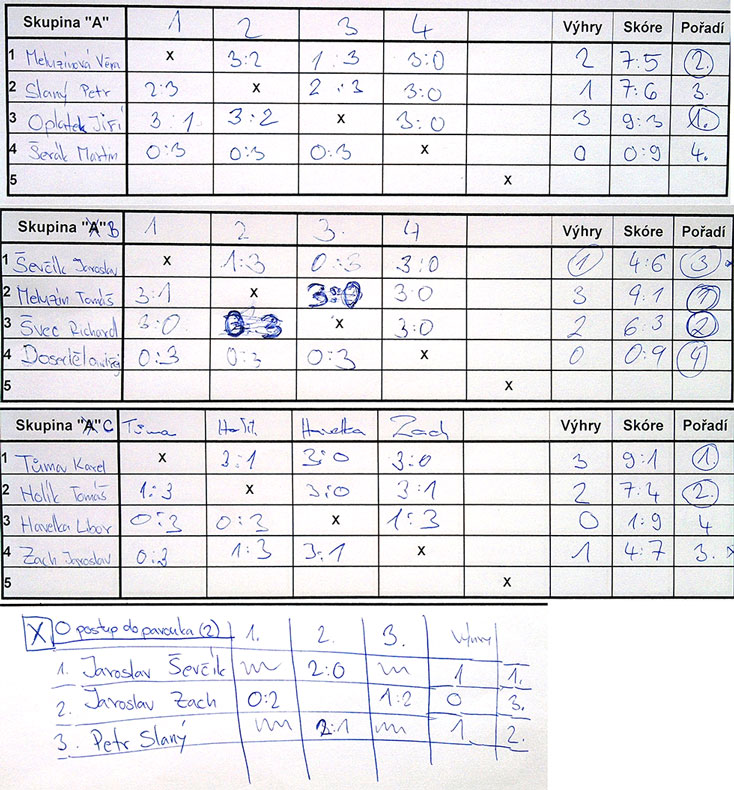 Skupina "A" 1 2 3 4 Výhry Skóre Pořadí
1 Meluzínová Věra x 3:2 1:3 3:0 2 7:5 2.
2 Slaný Petr 2:3 x 2:3 3:0 1 7:6 3.
3 Oplatek Jiří 3:1 3:2 x 3:0 3 9:3 1.
4 Šerák Martin 0:3 0:3 0:3 x 0 0:9 4.
5 x
Skupina "A" B 1 2 3. 4 Výhry Skóre Pořadí
1 Ševčík Jaroslav x 1:3 0:3 3:0 1 4:6 3
2 Meluzín Tomáš 3:1 x 3:0 3:0 3 9:1 1
3 Švec Richard 3:0 0:3 x 3:0 2 6:3 2
4 0:3 0:3 0:3 x 0 0:9 4
5 x
Skupina "A" C Tůma Holík Havelka Zach Výhry Skóre Pořadí
1 Tůma Karel x 3:1 3:0 3:0 3 9:1 1.
2 Holík Tomáš 1:3 x 3:0 3:1 2 7:4 2.
3 Havelka Libor 0:3 0:3 x 1:3 0 1:9 4
4 Zach Jaroslav 0:3 1:3 3:1 x 1 4:7 3. x
5 x
X O postup do pavouka (2) 1. 2. 3. Výhry
1. Jaroslav Ševčík 2:0 1 1.
2. Jaroslav Zach 0:2 1:2 0 3.
3. Petr Slaný 2:1 1 2.